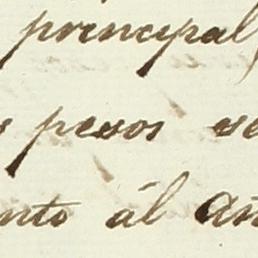 principal
pesos se
nto ál añ